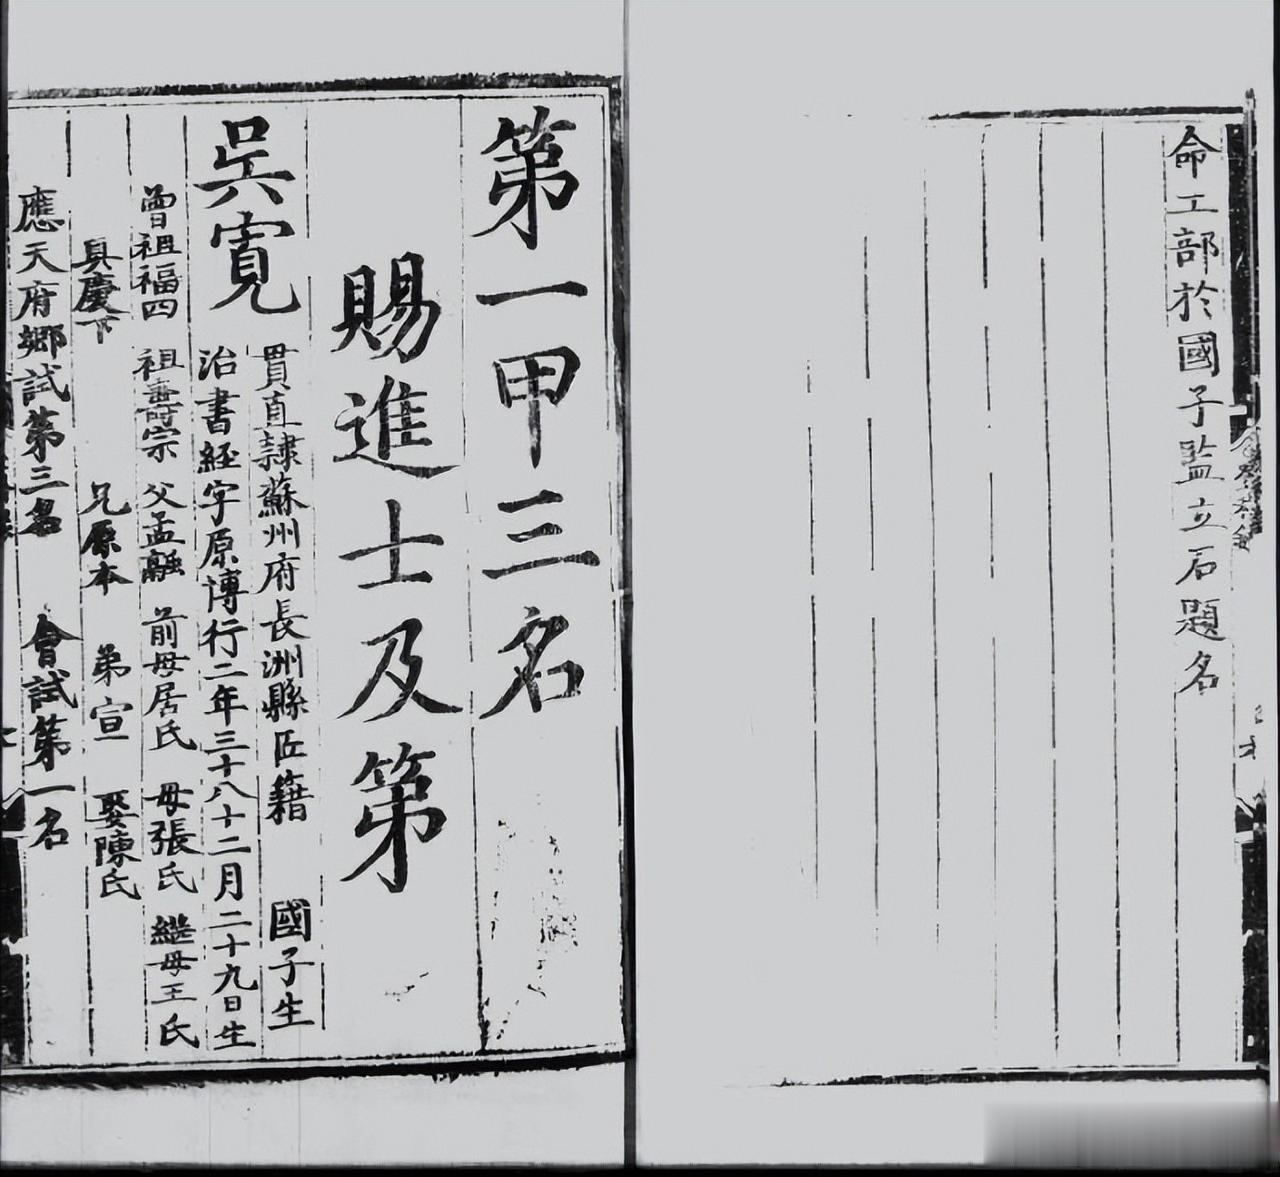 命工部於國子監立石題名
第一甲三名
賜進士及第
吳寬
貫直隸蘇州府長洲縣匠籍 國子生
治書經字原博行二年三十八十二月二十九日生
曾祖福四 祖壽宗 父孟融 前母居氏 母張氏 繼母王氏
具慶下 兄原本 弟宣 娶陳氏
應天府鄉試第三名 會試第一名